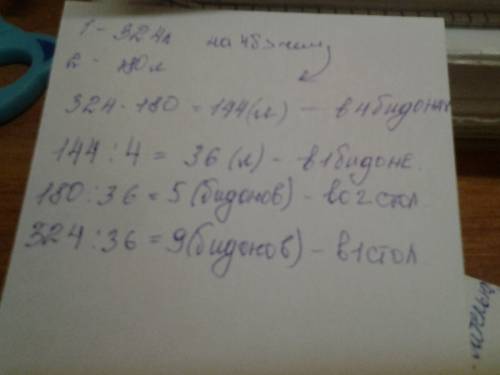 1 - 324л на 4б > чем
2 - 180л
324 - 180 = 144(л) - в 4 бидонах
144 : 4 = 36 (л) - в 1 бидоне.
180 : 36 = 5 (бидонов) - во 2 стол
324 : 36 = 9 (бидонов) - в 1 стол